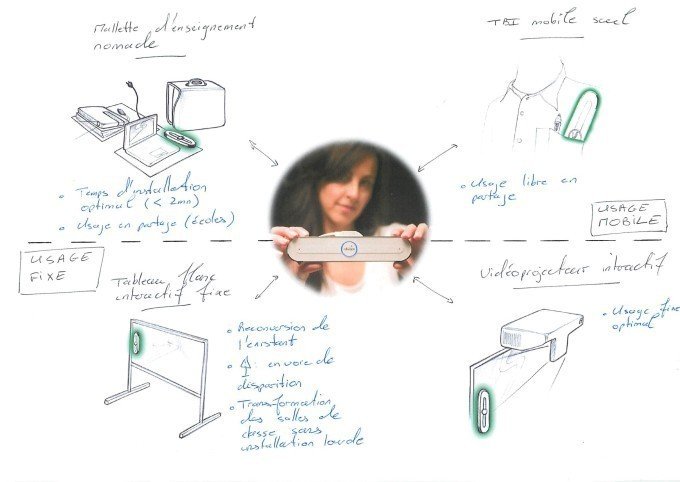 Mallette d'enseignement
nomade
TBI mobile seul
• Temps d'installation
optimal (< 2mn)
• Usage en partage (écoles)
• Usage libre en
partage
USAGE
MOBILE
USAGE
FIXE
Tableau blanc
interactif fixe
Vidéoprojecteur interactif
• Reconversion de
l'existant
: en voie de
disparition
• Transformation
des salles de
classe sans
installation lourde
• Usage fixe
optimal